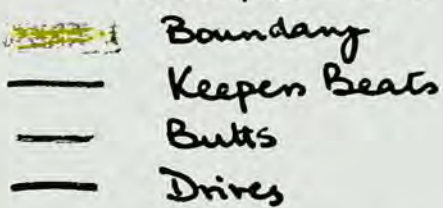 Boundary
Keepers Beats
Butts
Drives